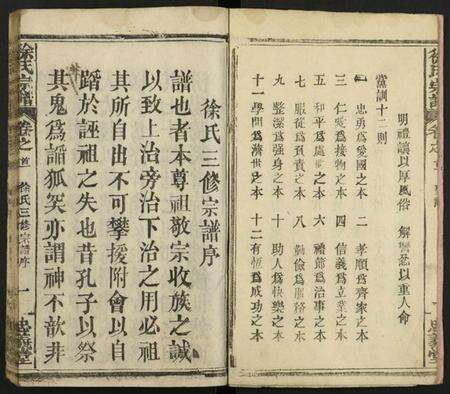 徐氏宗譜
明禮讓以厚風俗 解讐忿以重人命
黨訓十二則
一 忠勇爲愛國之本 二 孝順爲齊家之本
三 仁愛爲接物之本 四 信義爲立業之本
五 和平爲處世之本 六 禮節爲治事之本
七 服從爲負責之本 八 勤儉爲服務之本
九 整潔爲強身之本 十 助人爲快樂之本
十一 學問爲濟世之本 十二 有恆爲成功之本
徐氏三修宗譜序
譜也者本尊祖敬宗收族之誠
以致上治旁治下治之用必祖
其所自出不可攀援附會以自
蹈於誣祖之失也昔孔子以祭
其鬼爲謟狐突亦謂神不歆非
徐氏宗譜 卷之首 徐氏三修宗譜序 一